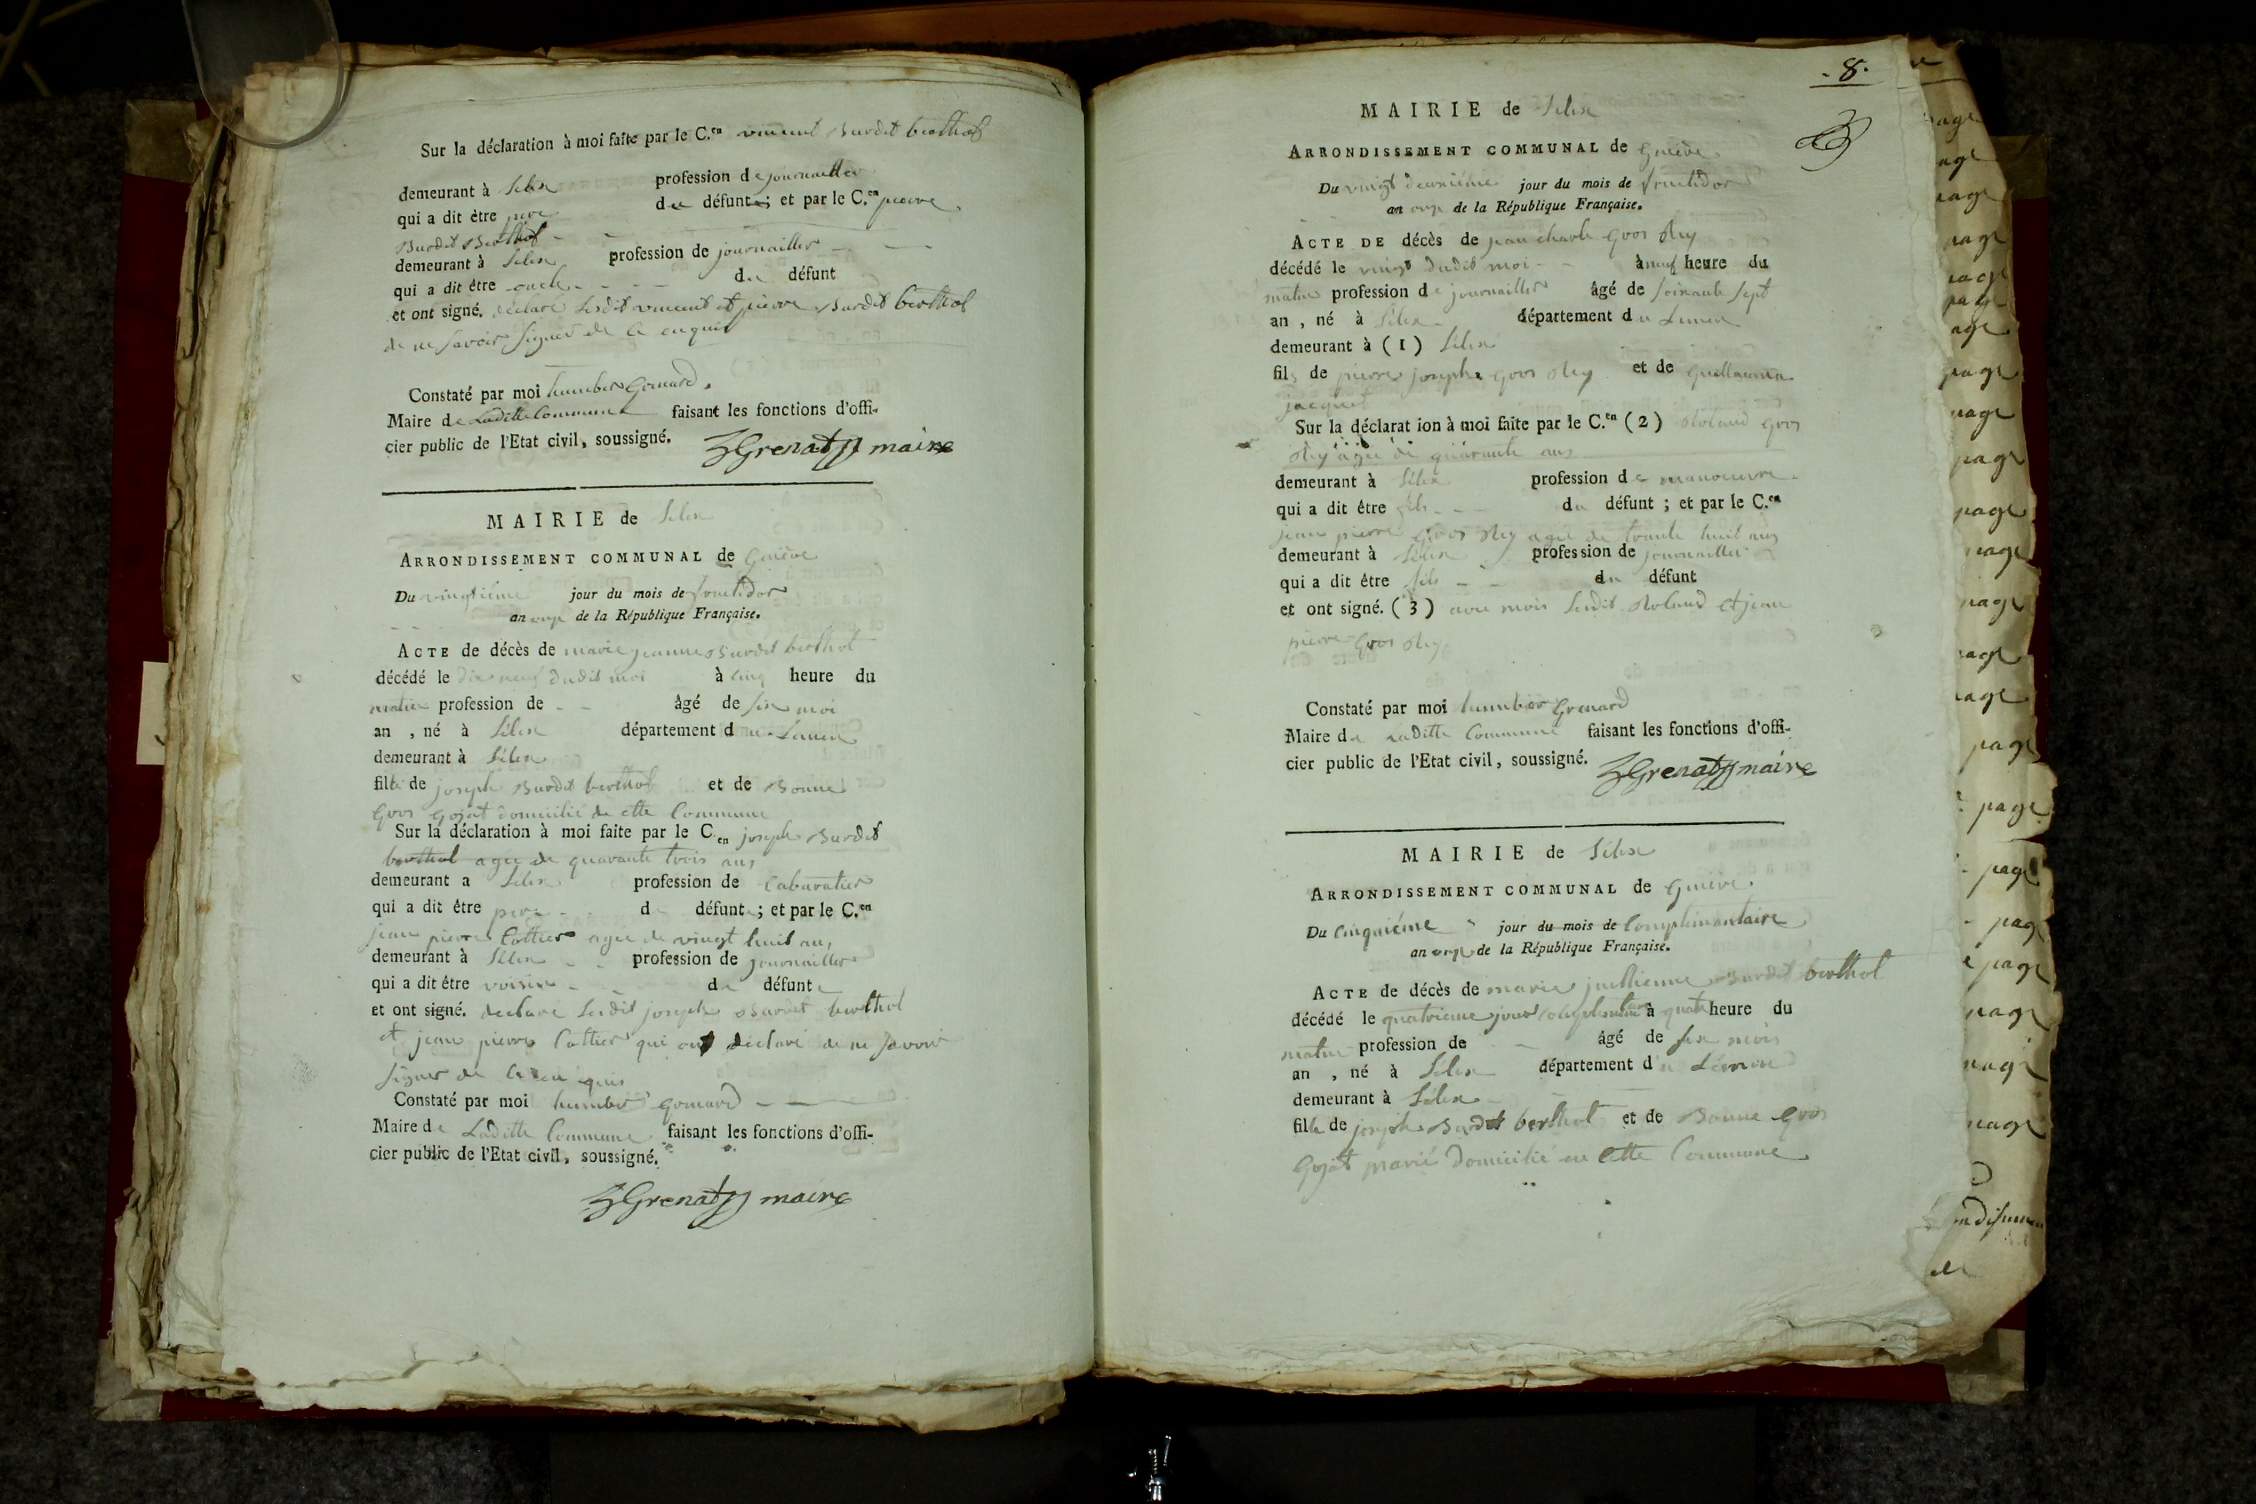 Sur la déclaration à moi faite par le C.en vincent Burdet berthol
demeurant à Silex profession de journallier
qui a dit être pere du défunt; et par le C.en pierre
Burdet Berthol
demeurant à Silex profession de journallier
qui a dit être oncle du défunt
et ont signé. déclaré lesdit vincent et pierre Burdet berthol
de ne savoir signer de ce enquis
Constaté par moi humber Grenard
Maire de Laditte Commune faisant les fonctions d'offi-
cier public de l'Etat civil, soussigné. Grenat maire
MAIRIE de Silex
ARRONDISSEMENT COMMUNAL de Genève
Du vingtième jour du mois de fructidor
an onze de la République Française.
ACTE de décès de marie jeanne Burdet berthol
décédé le dix neuf dudit moi à cinq heure du
matin profession de âgé de six moi
an, né à Silex département du Léman
demeurant à Silex
fille de joseph Burdet berthol et de Bonne
Gros Gojat domicilié de cette Commune
Sur la déclaration à moi faite par le C.en joseph Burdet
berthol agee de quarante trois ans
demeurant a Silex profession de Cabaratier
qui a dit être pere de défunte; et par le C.en
jean pierre Cottier agee de vingt huit ans
demeurant à Silex profession de journallier
qui a dit être voisin de défunte
et ont signé. declare lesdit joseph Burdet berthol
et jean pierre Cottier qui ont déclaré de ne savoir
signer de ce enquis
Constaté par moi humber Grenard
Maire de Laditte Commune faisant les fonctions d'offi-
cier public de l'Etat civil, soussigné.
Grenat maire
.8.
MAIRIE de Silex
ARRONDISSEMENT COMMUNAL de Genève
Du vingt deuxième jour du mois de fructidor
an onze de la République Française.
ACTE DE décès de jean charle Gros Rey
décédé le vingt dudit moi à neuf heure du
matin profession de journallier âgé de soixante sept
an, né à Silex département du Leman
demeurant à (1) Silex
fils de pierre joseph Gros Rey et de Guillaumea
jacquet
Sur la déclarat ion à moi faite par le C.en (2) Roland Gros
Rey agee de quarante ans
demeurant à Silex profession de manoeuvre
qui a dit être fils du défunt; et par le C.en
jean pierre Gros Rey agee de trante huit ans
demeurant à Silex profession de journallier
qui a dit être fils du défunt
et ont signé. (3) avec mois lesdit Roland et jean
pierre Gros Rey
Constaté par moi humber Grenard
Maire de Laditte Commune faisant les fonctions d'offi-
cier public de l'Etat civil, soussigné. Grenat maire
MAIRIE de Silex
ARRONDISSEMENT COMMUNAL de Genève
Du Cinquième jour du mois de Complimentaire
an onze de la République Française.
ACTE de décès de marie jullienne Burdet berthol
décédé le quatrieme jour complimentaire à quatre heure du
matin profession de âgé de six mois
an, né à Silex département du Léman
demeurant à Silex
fille de joseph Burdet berthol et de Bonne Gros
Gojat marié domicilié en cette Commune
page
page
page
page
page
page
page
page
page
page
page
page
page
page
page
page
page
page
page
page
page
page
page
page
de